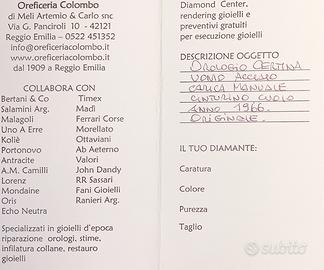 Oreficeria Colombo
di Meli Artemio & Carlo snc
Via G. Panciroli 10 - 42121
Reggio Emilia - 0522 451352
info@oreficeriacolombo.it
www.oreficeriacolombo.it
dal 1909 a Reggio Emilia
COLLABORA CON
Bertani & Co Timex
Salamini Arg. Madì
Malagoli Ferrari Corse
Uno A Erre Morellato
Koliè Ottaviani
Portonovo Ab Aeterno
Antracite Valori
A.M. Camilli John Dandy
Lorenz RR Sassari
Mondaine Fani Gioielli
Oris Ranieri Arg.
Echo Neutra
Specializzati in gioielli d'epoca
riparazione orologi, stime,
infilatura collane, restauro
gioielli
Diamond Center,
rendering gioielli e
preventivi gratuiti
per esecuzione gioielli
DESCRIZIONE OGGETTO
OROLOGIO CERTINA
UOMO ACCIAIO
CARICA MANUALE
CINTURINO CUOIO
ANNO 1966.
ORIGINALE.
IL TUO DIAMANTE:
Caratura
Colore
Purezza
Taglio
subito